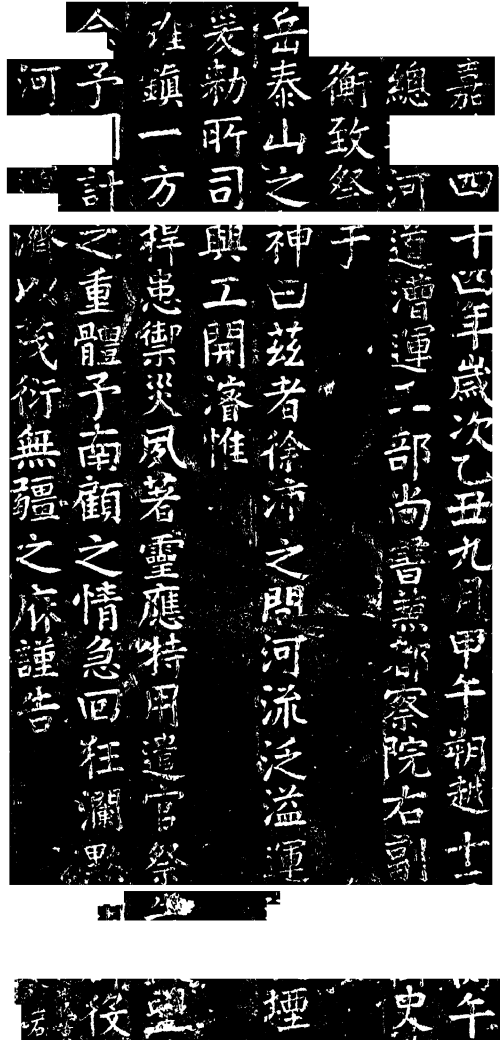 嘉四十四年歲次乙丑九月甲午朔越十午
總河道漕運工部尚書兼都察院右副史
衡致祭于
岳泰山之神曰茲者徐沛之間河流泛溢運堙
爰勑所司興工開濬惟
鎮一方捍患禦災夙著靈應特用遣官祭
予計之重體予南顧之情急回狂瀾默役
河濟以茂衍無疆之庥謹告